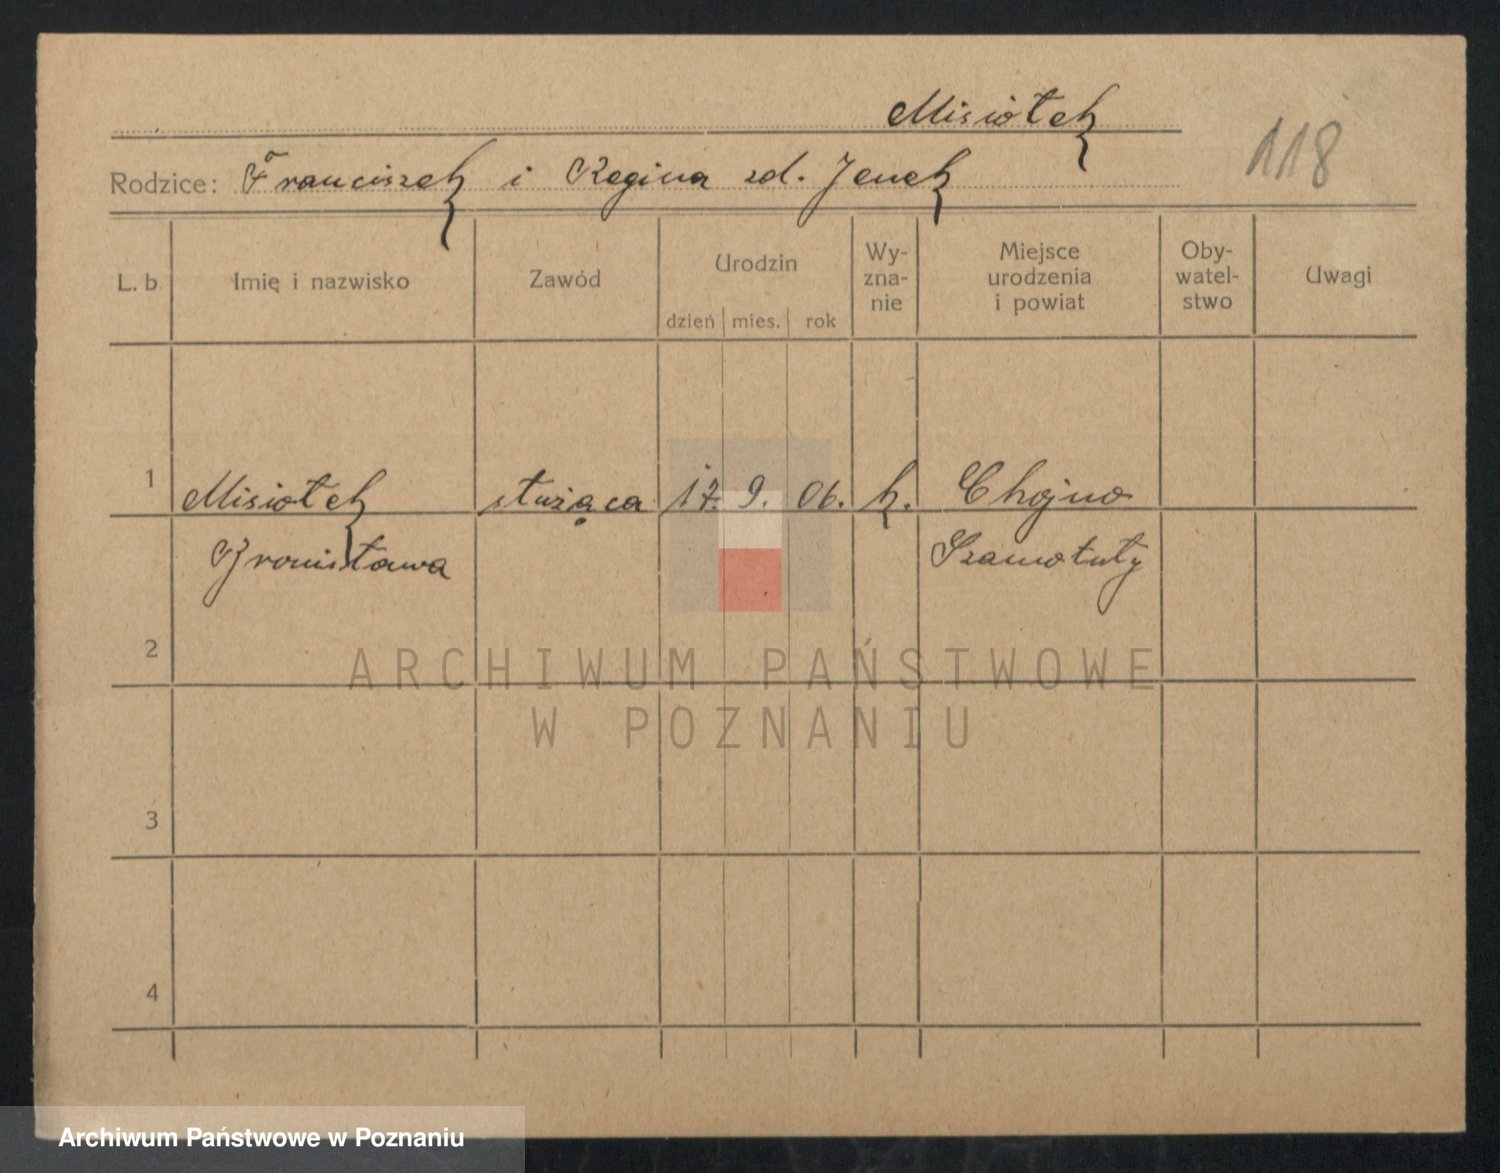 Misiołek
118
Rodzice: Franciszek i Regina zd. Jenek
L. b Imię i nazwisko Zawód Urodzin dzień mies. rok Wy-zna-nie Miejsce urodzenia i powiat Oby-watel-stwo Uwagi
1 Misiołek służąca 17. 9. 06. k. Chojno
Bronisława Szamotuły
2
ARCHIWUM PAŃSTWOWE
W POZNANIU
3
4
Archiwum Państwowe w Poznaniu